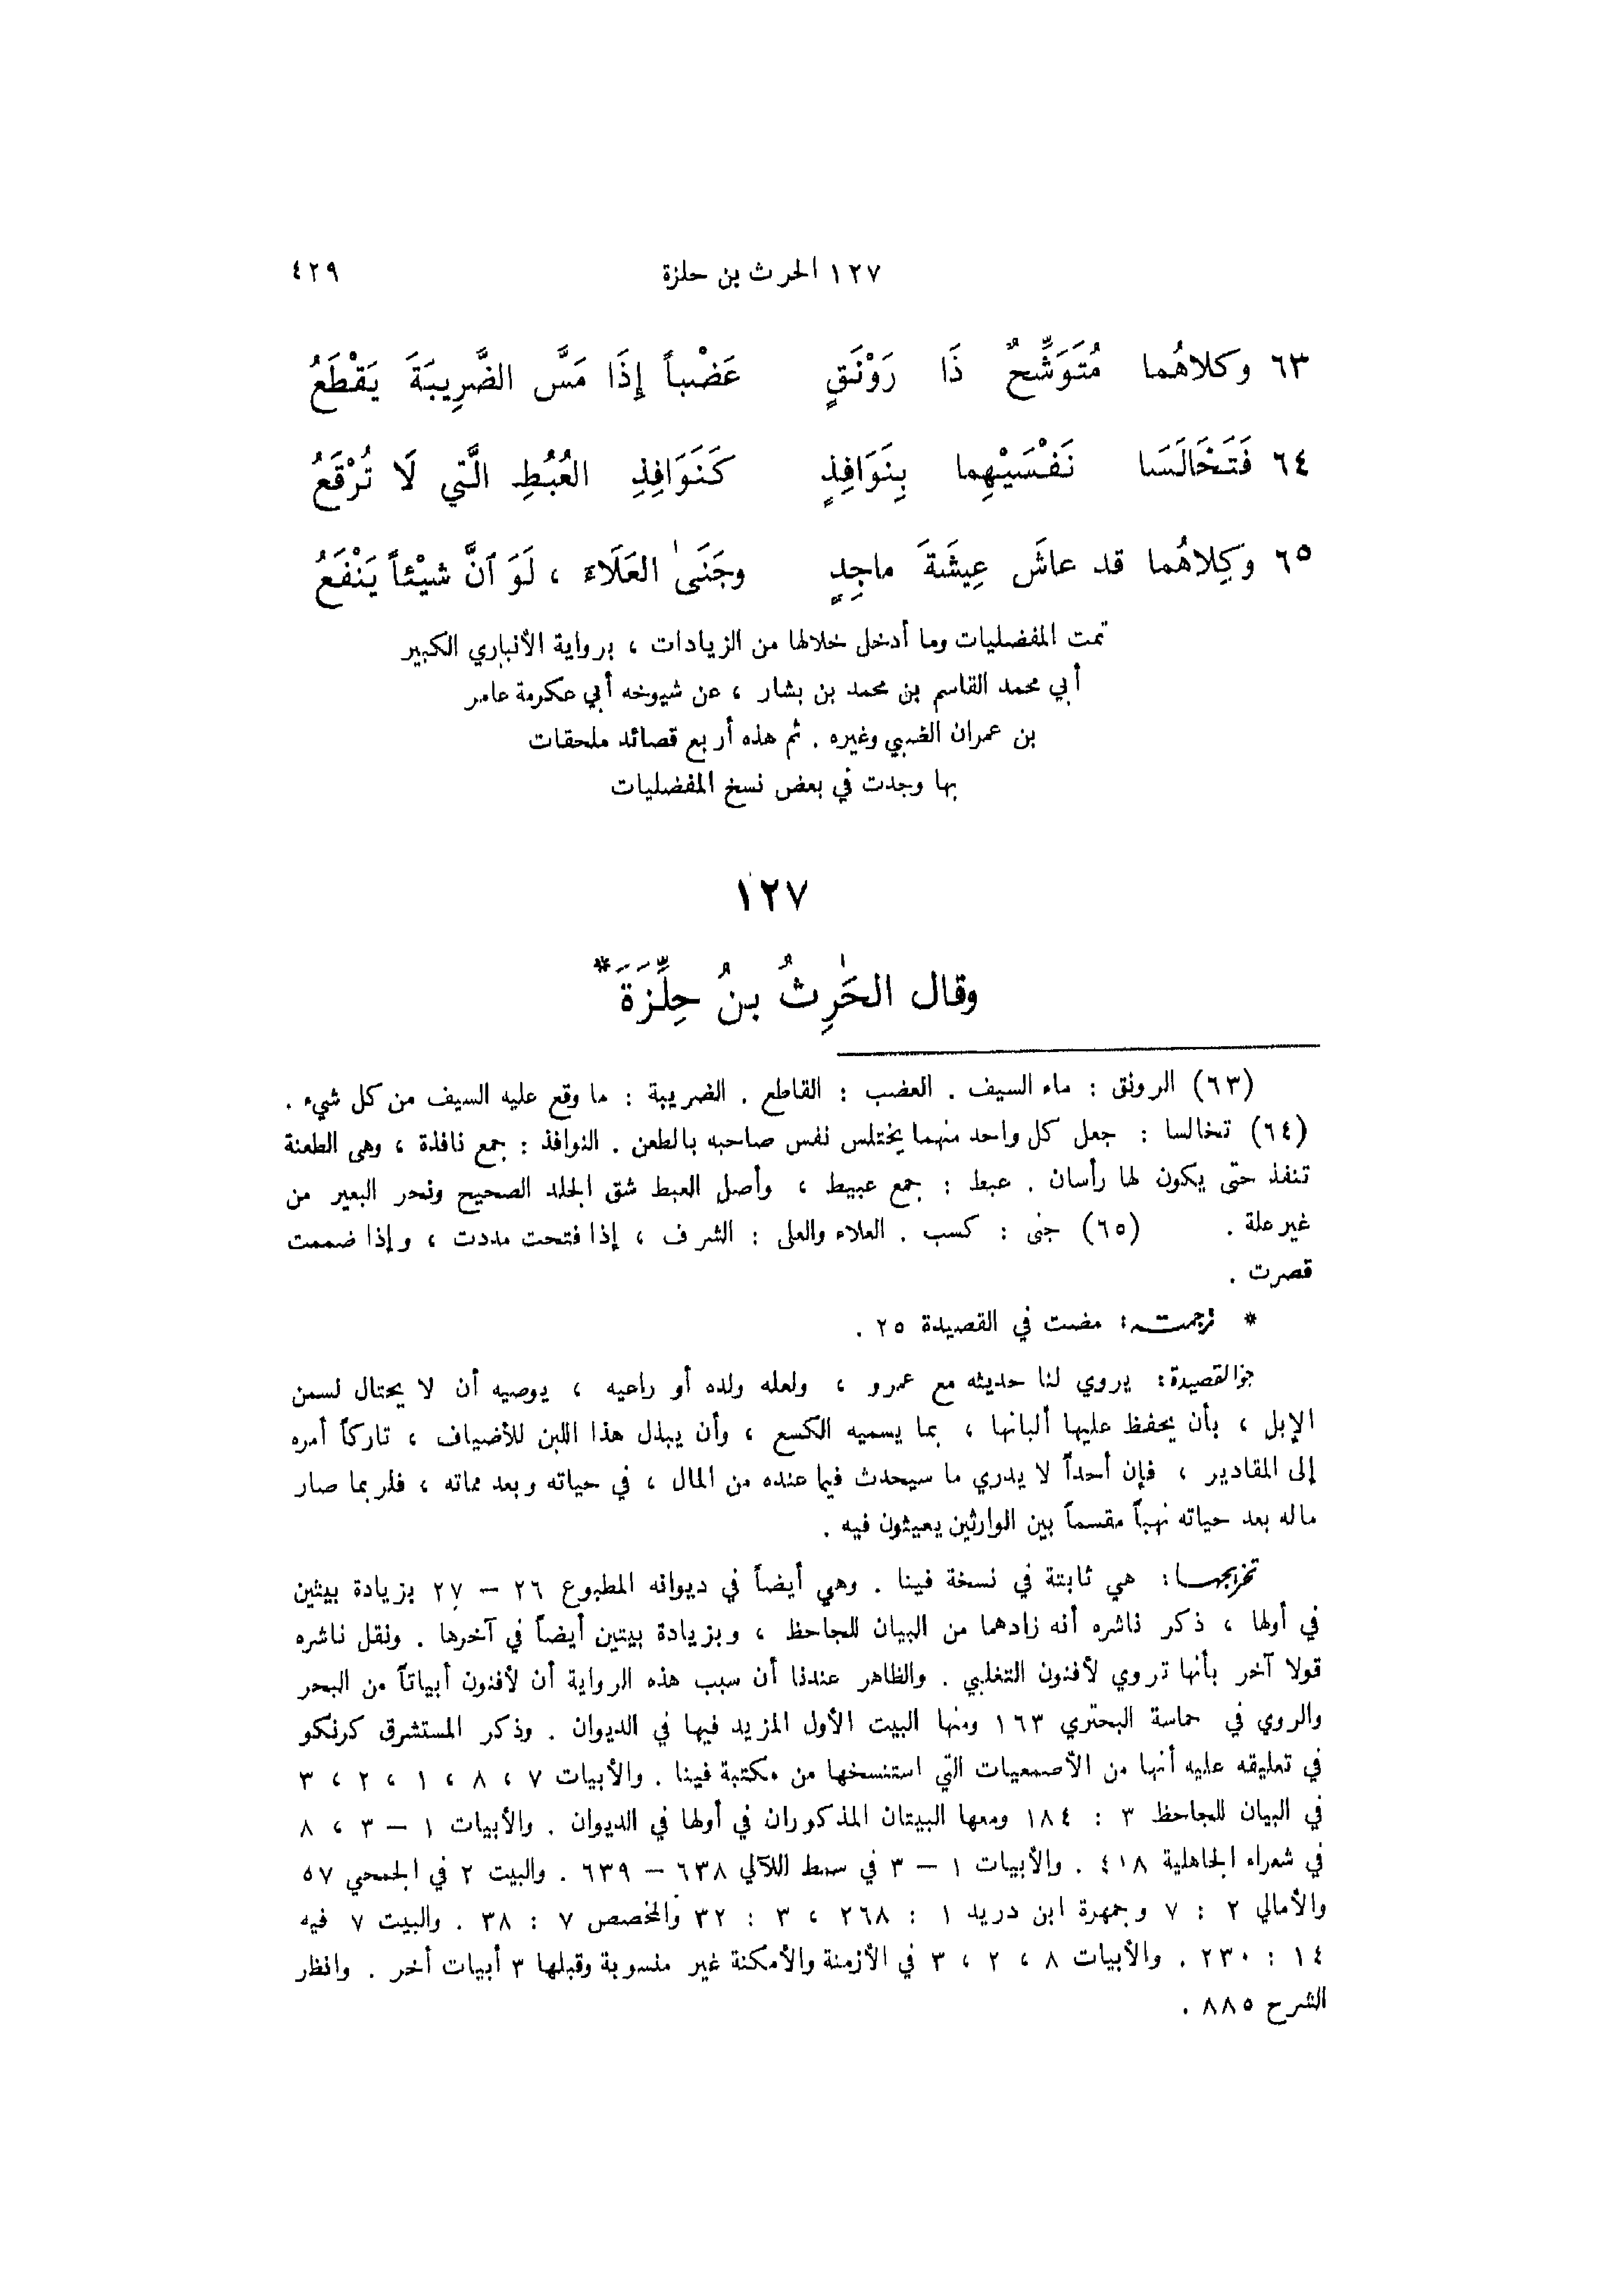 ١٢٧ الحرث بن حلزة ٤٢٩
٦٣ وكلاهُما مُتَوَشِّحٌ ذَا رَوْنَقٍ عَضْباً إِذَا مَسَّ الضَّرِيبَةَ يَقْطَعُ
٦٤ فَتَخَالَسَا نَفْسَيْهِما بِنَوَافِذٍ كَنَوَافِذِ العُبُطِ الَّتي لَا تُرْقَعُ
٦٥ وكِلاهُما قد عاشَ عِيشَةَ ماجِدٍ وجَنَىٰ العَلَاءَ ، لَوَ آنَّ شيْئاً يَنْفَعُ
تمت المفضليات وما أدخل خلالها من الزيادات ، برواية الأنباري الكبير
أبي محمد القاسم بن محمد بن بشار ، عن شيوخه أبي عكرمة عامر
بن عمران الضبي وغيره . ثم هذه أربع قصائد ملحقات
بها وجدت في بعض نسخ المفضليات
١٢٧
وقال الحَرِٰثُ بنُ حِلِّزَةَ*
(٦٣) الرونق : ماء السيف . العضب : القاطع . الضريبة : ما وقع عليه السيف من كل شيء .
(٦٤) تخالسا : جعل كل واحد منهما يختلس نفس صاحبه بالطعن . النوافذ : جمع نافذة ، وهى الطعنة
تنفذ حتى يكون لها رأسان . عبط : جمع عبيط ، وأصل العبط شق الجلد الصحيح ونحر البعير من
غير علة . (٦٥) جنى : كسب . العلاء والعلى : الشرف ، إذا فتحت مددت ، وإذا ضممت
قصرت .
* ترجمته: مضت في القصيدة ٢٥ .
جو القصيدة: يروي لنا حديثه مع عمرو ، ولعله ولده أو راعيه ، يوصيه أن لا يحتال لسمن
الإبل ، بأن يحفظ عليها ألبانها ، بما يسميه الكسع ، وأن يبذل هذا اللبن للأضياف ، تاركاً أمره
إلى المقادير ، فإن أحداً لا يدري ما سيحدث فيما عنده من المال ، في حياته وبعد مماته ، فلربما صار
ماله بعد حياته نهباً مقسماً بين الوارثين يعيثون فيه .
تخريجها: هي ثابتة في نسخة فينا . وهي أيضاً في ديوانه المطبوع ٢٦ – ٢٧ بزيادة بيتين
في أولها ، ذكر ناشره أنه زادهما من البيان للجاحظ ، وبزيادة بيتين أيضاً في آخرها . ونقل ناشره
قولا آخر بأنها تروي لأفنون التغلبي . والظاهر عندنا أن سبب هذه الرواية أن لأفنون أبياتاً من البحر
والروي في حماسة البحتري ١٦٣ ومنها البيت الأول المزيد فيها في الديوان . وذكر المستشرق كرنكو
في تعليقه عليه أنها من الأصمعيات التي استنسخها من مكتبة فينا . والأبيات ٧ ، ٨ ، ١ ، ٢ ، ٣
في البيان للجاحظ ٣ : ١٨٤ ومعها البيتان المذكوران في أولها في الديوان . والأبيات ١ – ٣ ، ٨
في شعراء الجاهلية ٤١٨ . والأبيات ١ – ٣ في سمط اللآلي ٦٣٨ – ٦٣٩ . والبيت ٢ في الجمحي ٥٧
والأمالي ٢ : ٧ وجمهرة ابن دريد ١ : ٢٦٨ ، ٣ : ٣٢ والمخصص ٧ : ٣٨ . والبيت ٧ فيه
١٤ : ٢٣٠ . والأبيات ٨ ، ٢ ، ٣ في الأزمنة والأمكنة غير منسوبة وقبلها ٣ أبيات أخر . وانظر
الشرح ٨٨٥ .